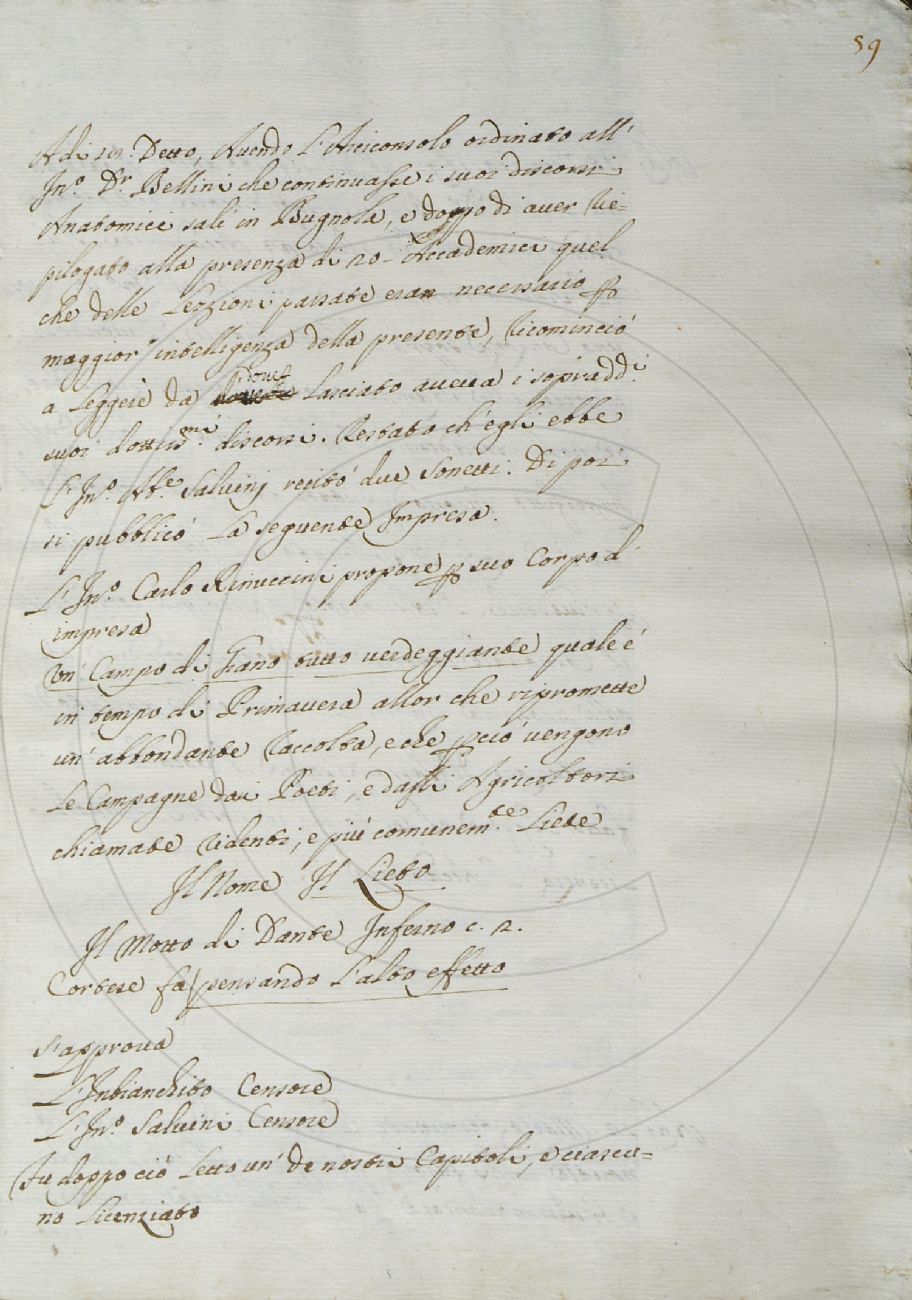 59
A di Detto, Avendo L'Arciconsolo ordinato all'
Inn.º D.r Bellini che continuasse i suoi discorsi
Anatomici salì in Bugnola, e doppo di aver rie-
pilogato alla presenza di 20 Accademici quel
che delle Lezzioni passate eran necessario p
maggior intelligenza della presente, ricominciò
a Leggere da dove Lasciato aveva i sopradd.i
suoi dottis.mi discorsi. Restato ch'egli ebbe
L'Inn.º Ab.e Salvini recitò due Sonetti. Di poi
si pubblicò La seguente Impresa.
L'Inn.º Carlo Rinuccini propone p suo Corpo d'
impresa
Un' Campo di Grano tutto verdeggiante quale è
in tempo di Primavera allor che ripromette
un' abbondante raccolta, e che pciò vengono
Le Campagne dai Poeti, e dagli Agricoltori
chiamate ridenti, e più comunem.te Liete
Il Nome Il Lieto
Il Motto di Dante Inferno c. 2.
Cortese fa pensando L'alto effetto
S'approva
L'Inbianchito Censore
L'Inn.º Salvini Censore
Fu doppo ciò Letto un' de nostri Capitoli, e ciascu=
no Licenziato